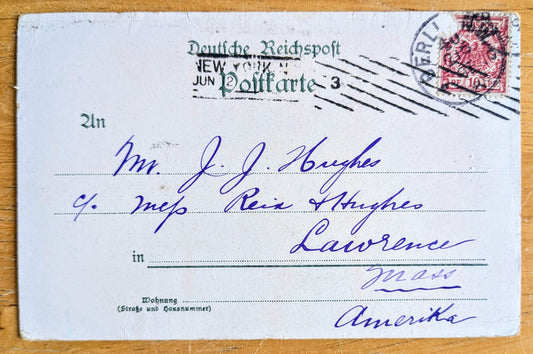 Deutsche Reichspost
NEW YORK, N.Y.
JUN 2
Postkarte
3
BERLIN
10
An
Mr. J. J. Hughes
c/o Mess Reid & Hughes
Lawrence
in
Mass
Wohnung
(Straße und Hausnummer)
Amerika